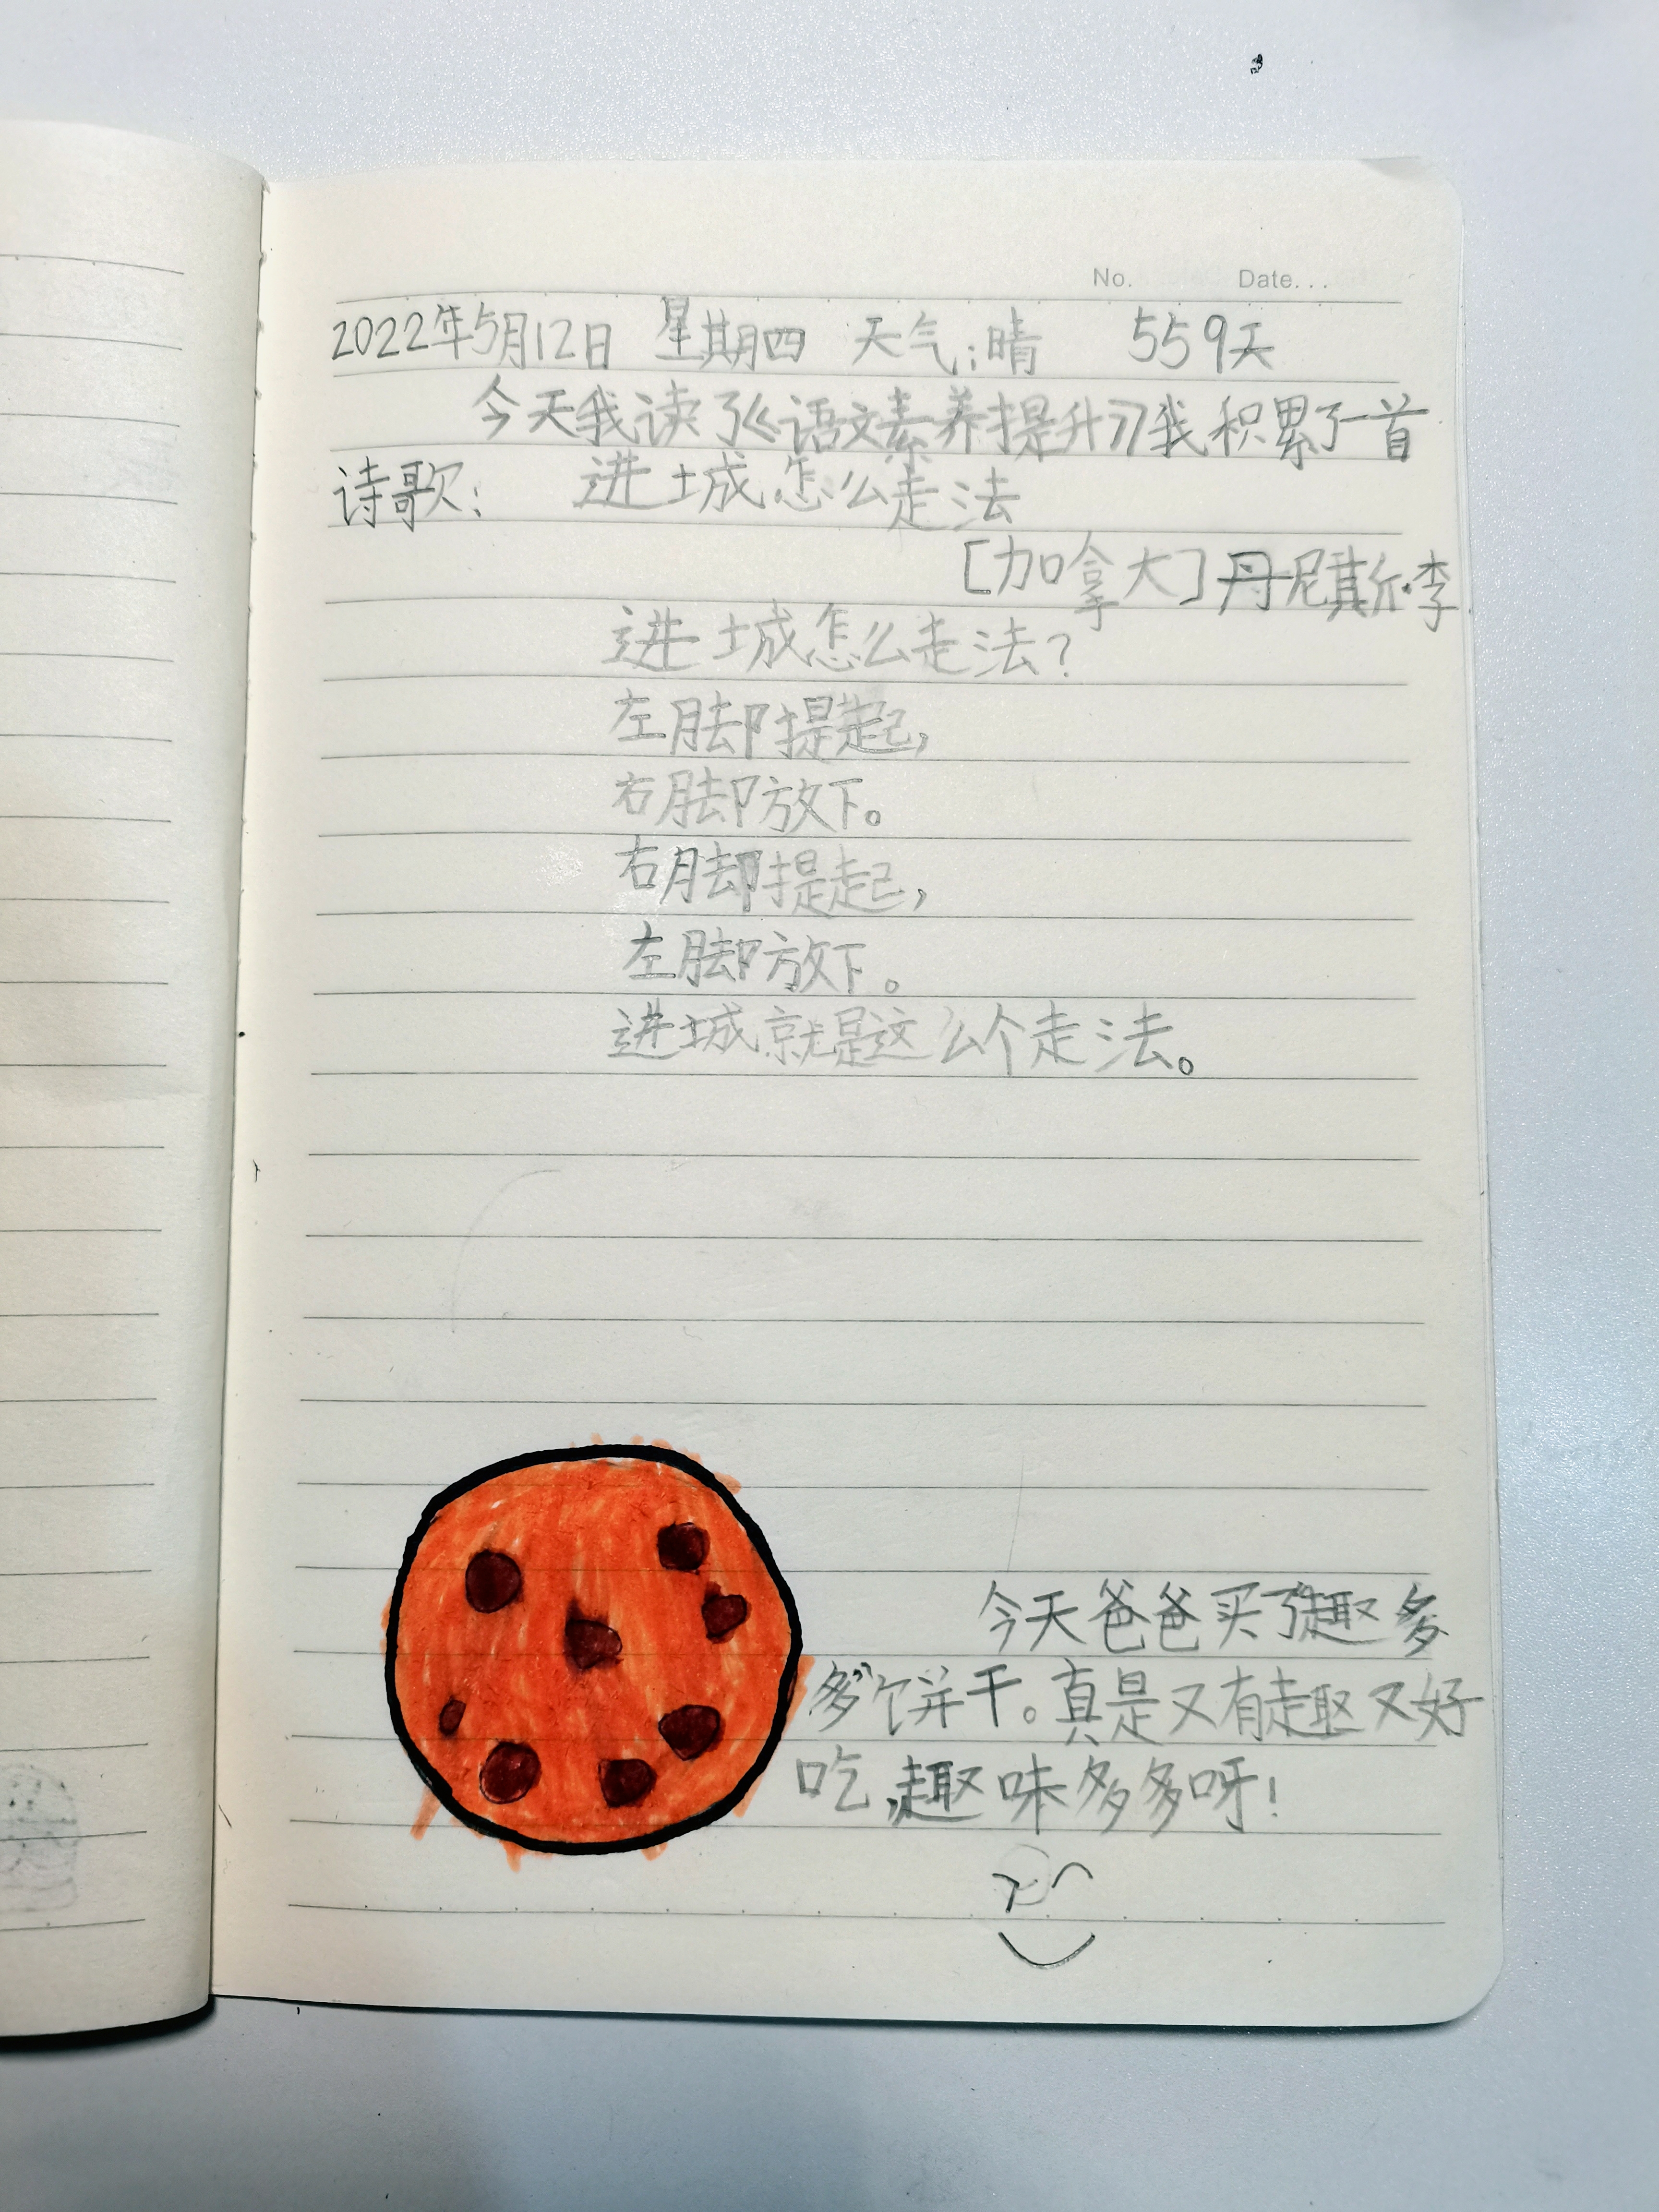 No. Date...
2022年5月12日 星期四 天气:晴 559天
今天我读了《语文素养提升》我积累了一首
诗歌: 进城怎么走法
[加拿大]丹尼斯·李
进城怎么走法?
左脚提起,
右脚放下。
右脚提起,
左脚放下。
进城就是这么个走法。
今天爸爸买了“趣多
多”饼干。真是又有趣又好
吃,趣味多多呀!